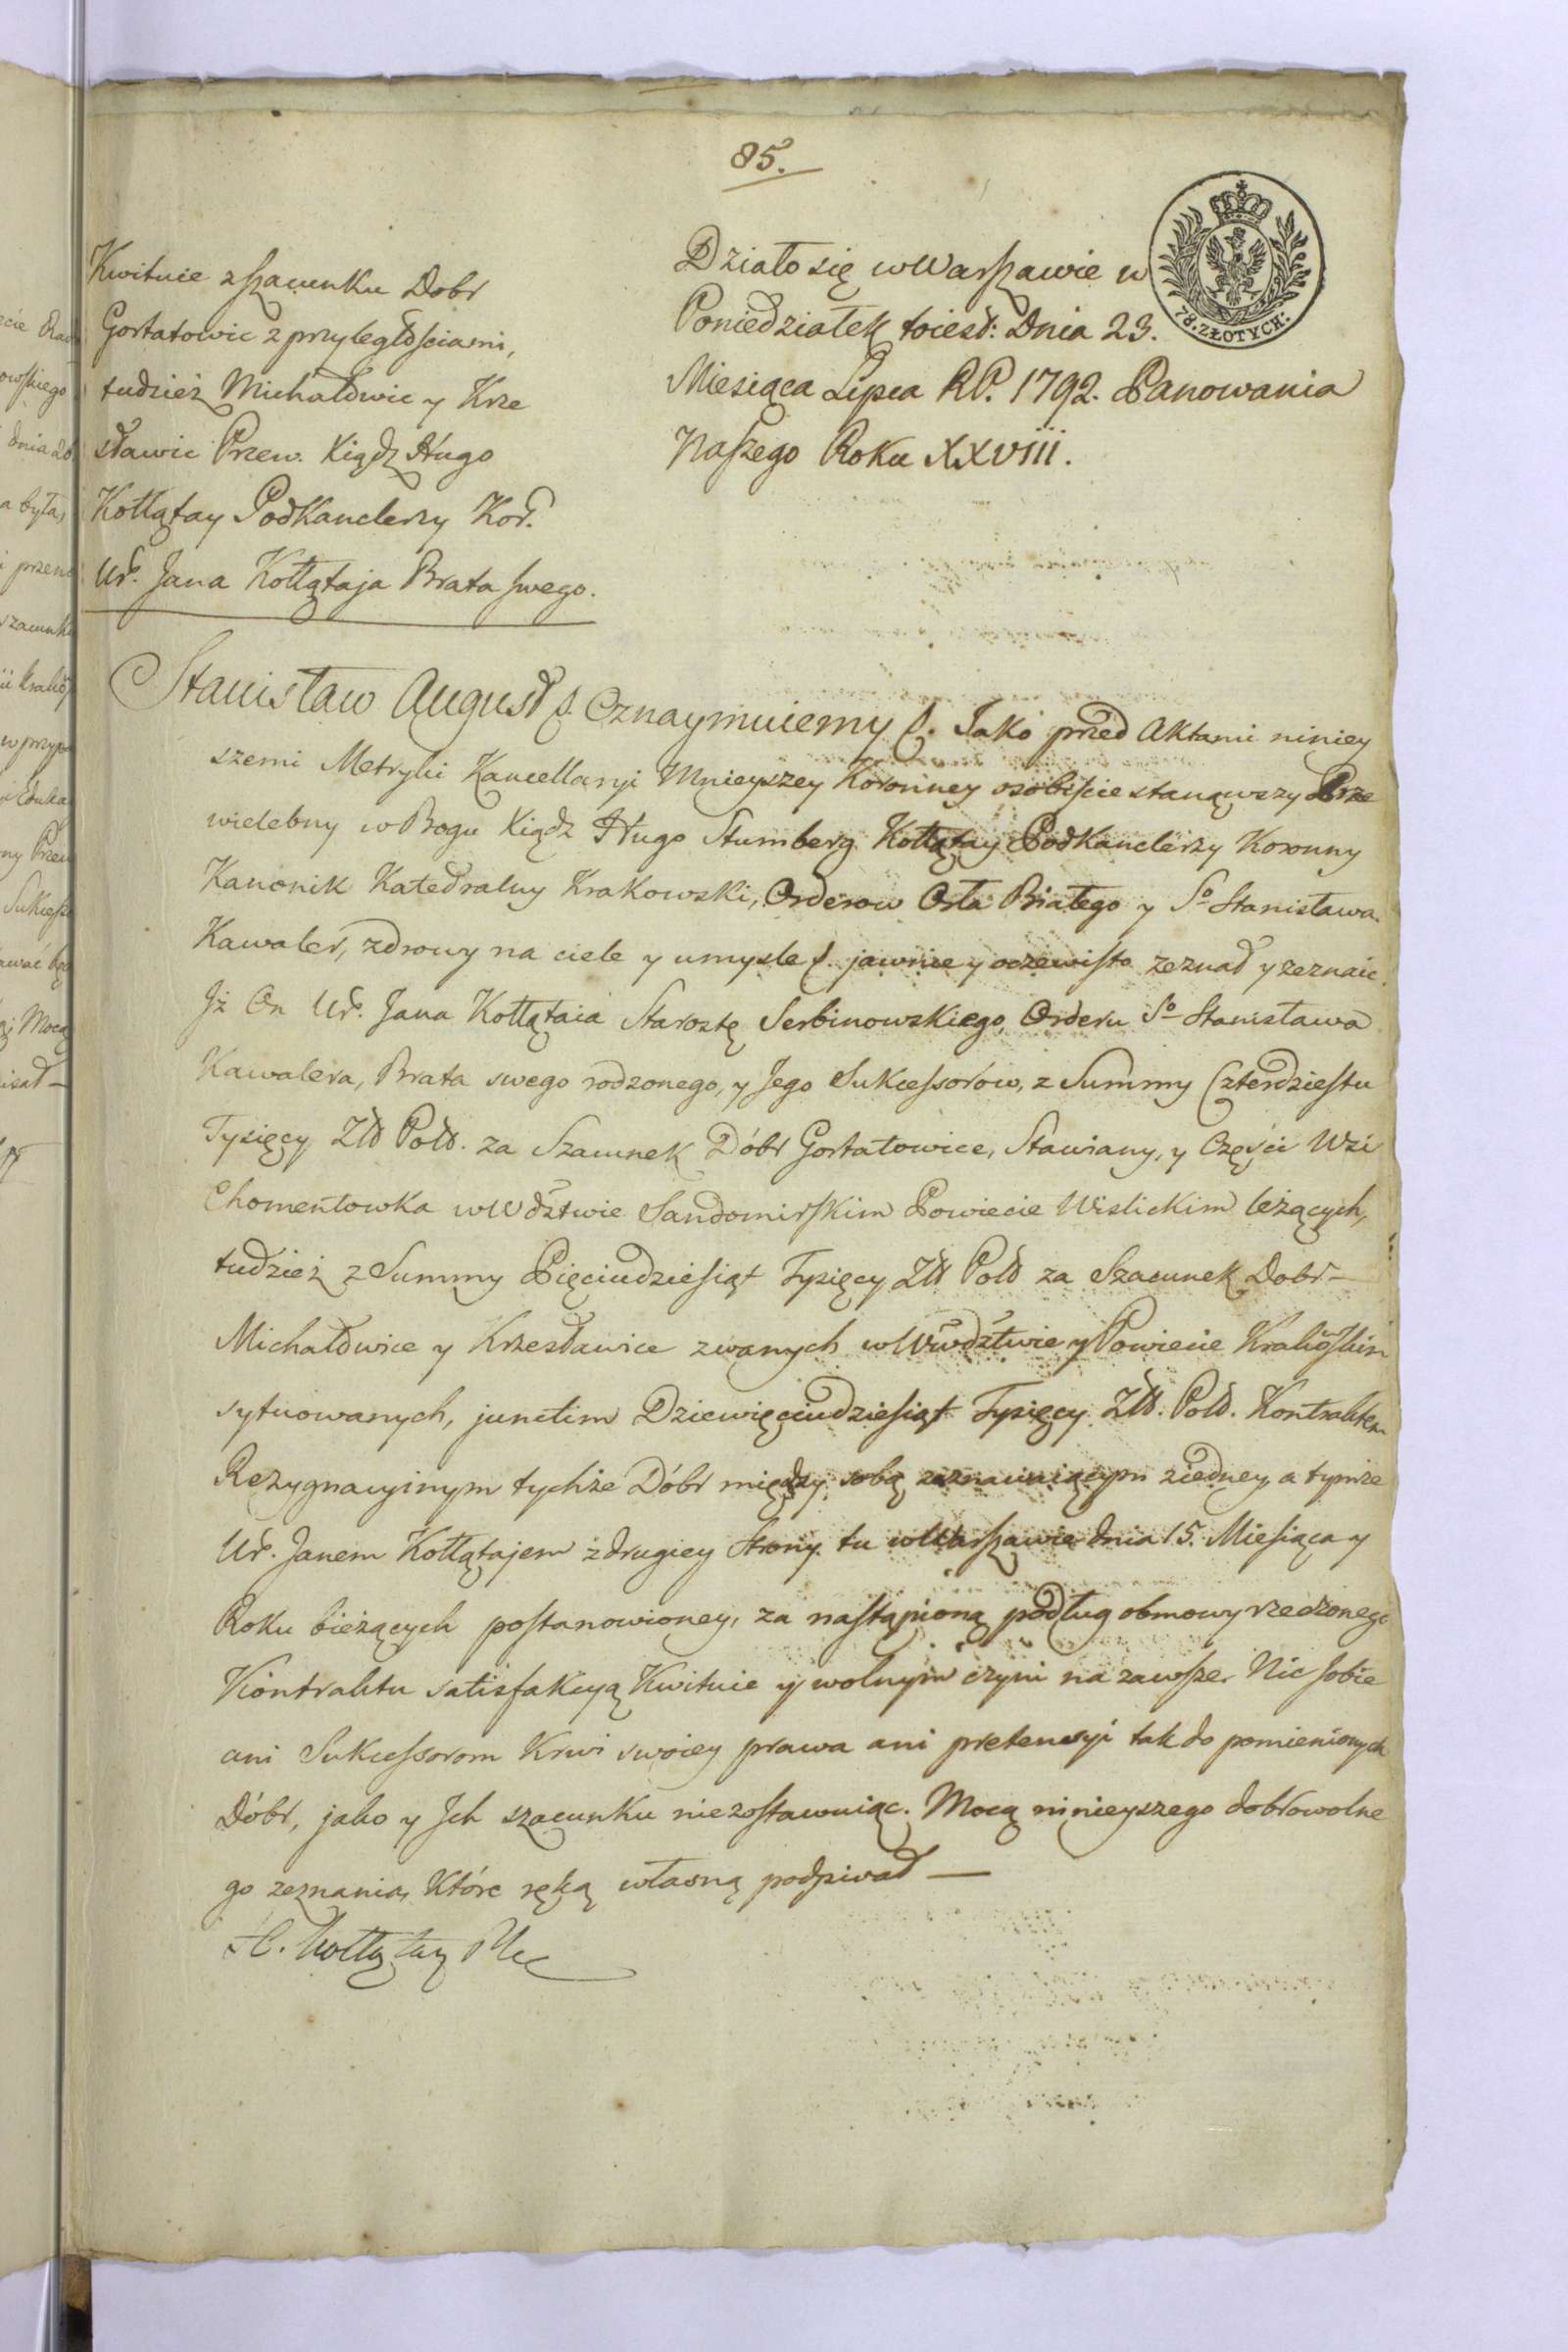 85.
Kwituie z szacunku Dobr
Gortatowic z przyległościami,
tudzież Michałowic y Krze
sławic Przew. Xiądz Hugo
Kołłątay Podkanclerzy Kor.
Ur. Jana Kołłątaja Brata swego.
Działo się w Warszawie w
Poniedziałek toiest: Dnia 23.
Miesiąca Lipca R.P. 1792. Panowania
Naszego Roku XXVIII.
78. ZŁOTYCH:
Stanisław August &. Oznaymuiemy &. Jako przed Aktami niniey
szemi Metryki Kancellaryi Mnieyszey Koronney osobiście stanąwszy Prze
wielebny w Bogu Xiądz Hugo Stumberg Kołłątay Podkanclerzy Koronny
Kanonik Katedralny Krakowski, Orderow Orła Białego y So Stanisława
Kawaler, zdrowy na ciele y umysle &. jawnie y oczewisto zeznał y zeznaie.
Jż On Ur. Jana Kołłątaia Starostę Serbinowskiego, Orderu So Stanisława
Kawalera, Brata swego rodzonego, y Jego Sukcessorow, z Summy Czterdziestu
Tysięcy Złł Poll. za Szacunek Dóbr Gortatowice, Stawiany, y Części Wsi
Chomentowka w Wdztwie Sandomirskim Powiecie Wislickim leżących,
tudzież z Summy Pięciudziesiąt Tysięcy Złł Poll za Szacunek Dobr —
Michałowice y Krzesławice zwanych w Wwdztwie y Powiecie Krakoskim
sytuowanych, junctim Dziewięciudziesiąt Tysięcy Złł. Poll. Kontraktem
Rezygnacyinym tychże Dóbr między sobą zeznawaiącym ziedney, a tymże
Ur. Janem Kołłątajem z drugiey Strony tu w Warszawie dnia 15. Miesiąca y
Roku bieżących postanowioney, za nastąpioną podług obmowy rzeczonego
Kontraktu satisfakcyą Kwituie y wolnym czyni na zawsze. Nic sobie
ani Sukcessorom Krwi swoiey prawa ani pretensyi tak do pomienionych
Dóbr, jako y Jch szacunku niezostawuiąc. Mocą ninieyszego dobrowolne
go zeznania, Które ręką własną podpisał —
H. Kołłątay